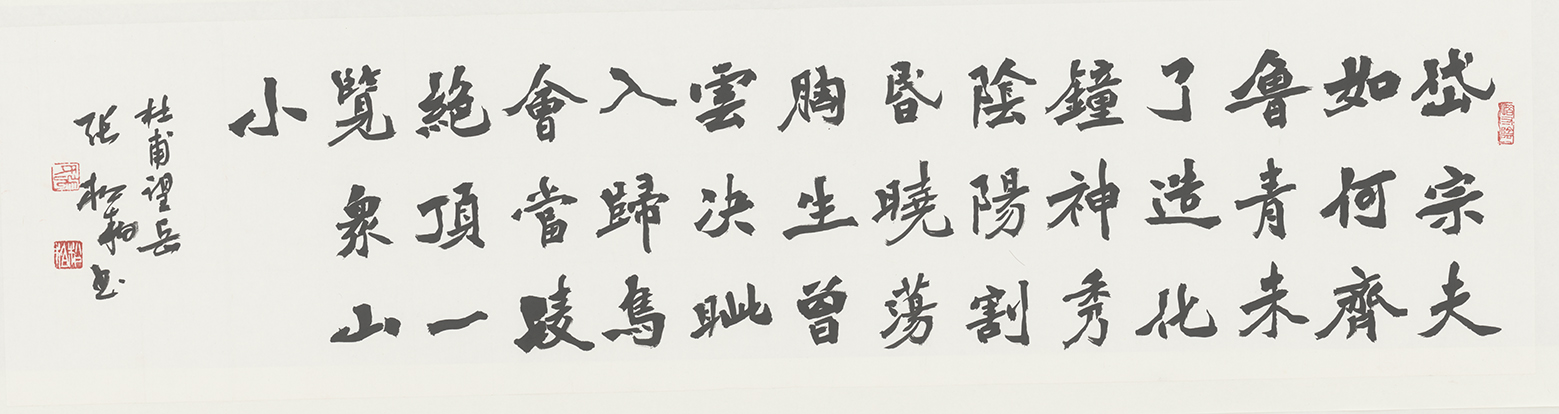 岱宗夫
如何齊
魯青未
了造化
鐘神秀
陰陽割
昏曉蕩
胸生曾
雲决眦
入歸鳥
會當陵
絶頂一
覽衆山
小
杜甫望岳
张松书